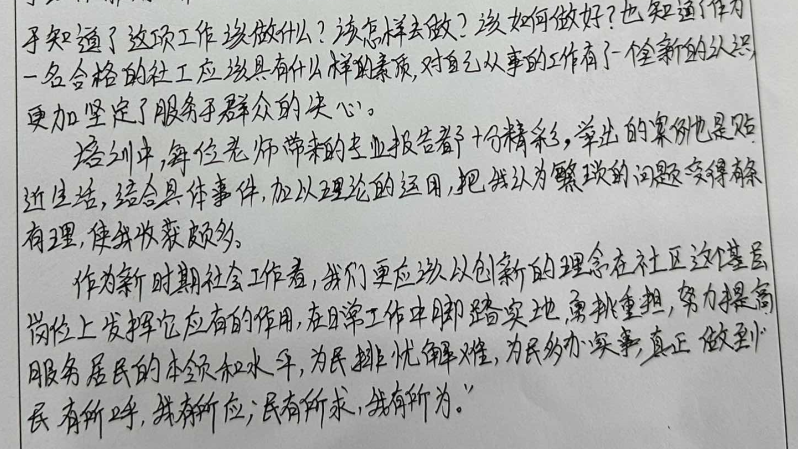 于知道了这项工作该做什么？该怎样去做？该如何做好？也知道了作为
一名合格的社工应该具有什么样的素质，对自己从事的工作有了一个全新的认识，
更加坚定了服务于群众的决心。
培训中，每位老师带来的专业报告都十分精彩，举出的案例也是贴
近生活，结合具体事件，加以理论的运用，把我认为繁琐的问题变得有条
有理，使我收获颇多。
作为新时期社会工作者，我们更应该以创新的理念在社区这个基层
岗位上发挥它应有的作用，在日常工作中脚踏实地，勇挑重担，努力提高
服务居民的本领和水平，为民排忧解难，为民多办实事，真正做到"
民有所呼，我有所应；民有所求，我有所为。"